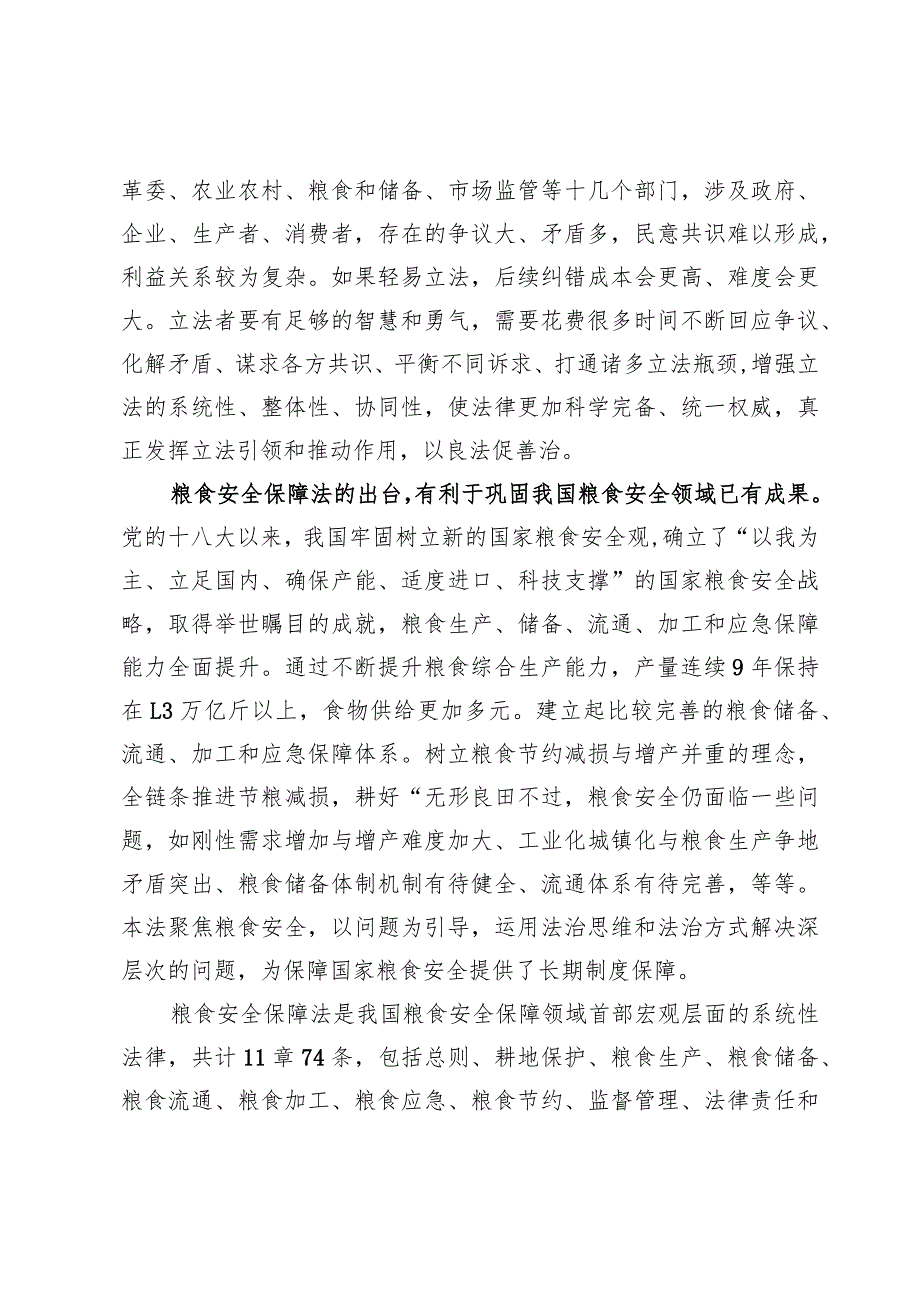 革委、农业农村、粮食和储备、市场监管等十几个部门，涉及政府、
企业、生产者、消费者，存在的争议大、矛盾多，民意共识难以形成，
利益关系较为复杂。如果轻易立法，后续纠错成本会更高、难度会更
大。立法者要有足够的智慧和勇气，需要花费很多时间不断回应争议、
化解矛盾、谋求各方共识、平衡不同诉求、打通诸多立法瓶颈,增强立
法的系统性、整体性、协同性，使法律更加科学完备、统一权威，真
正发挥立法引领和推动作用，以良法促善治。
粮食安全保障法的出台,有利于巩固我国粮食安全领域已有成果。
党的十八大以来，我国牢固树立新的国家粮食安全观,确立了“以我为
主、立足国内、确保产能、适度进口、科技支撑”的国家粮食安全战
略，取得举世瞩目的成就，粮食生产、储备、流通、加工和应急保障
能力全面提升。通过不断提升粮食综合生产能力，产量连续9年保持
在L3万亿斤以上，食物供给更加多元。建立起比较完善的粮食储备、
流通、加工和应急保障体系。树立粮食节约减损与增产并重的理念，
全链条推进节粮减损，耕好“无形良田不过，粮食安全仍面临一些问
题，如刚性需求增加与增产难度加大、工业化城镇化与粮食生产争地
矛盾突出、粮食储备体制机制有待健全、流通体系有待完善，等等。
本法聚焦粮食安全，以问题为引导，运用法治思维和法治方式解决深
层次的问题，为保障国家粮食安全提供了长期制度保障。
粮食安全保障法是我国粮食安全保障领域首部宏观层面的系统性
法律，共计11章74条，包括总则、耕地保护、粮食生产、粮食储备、
粮食流通、粮食加工、粮食应急、粮食节约、监督管理、法律责任和